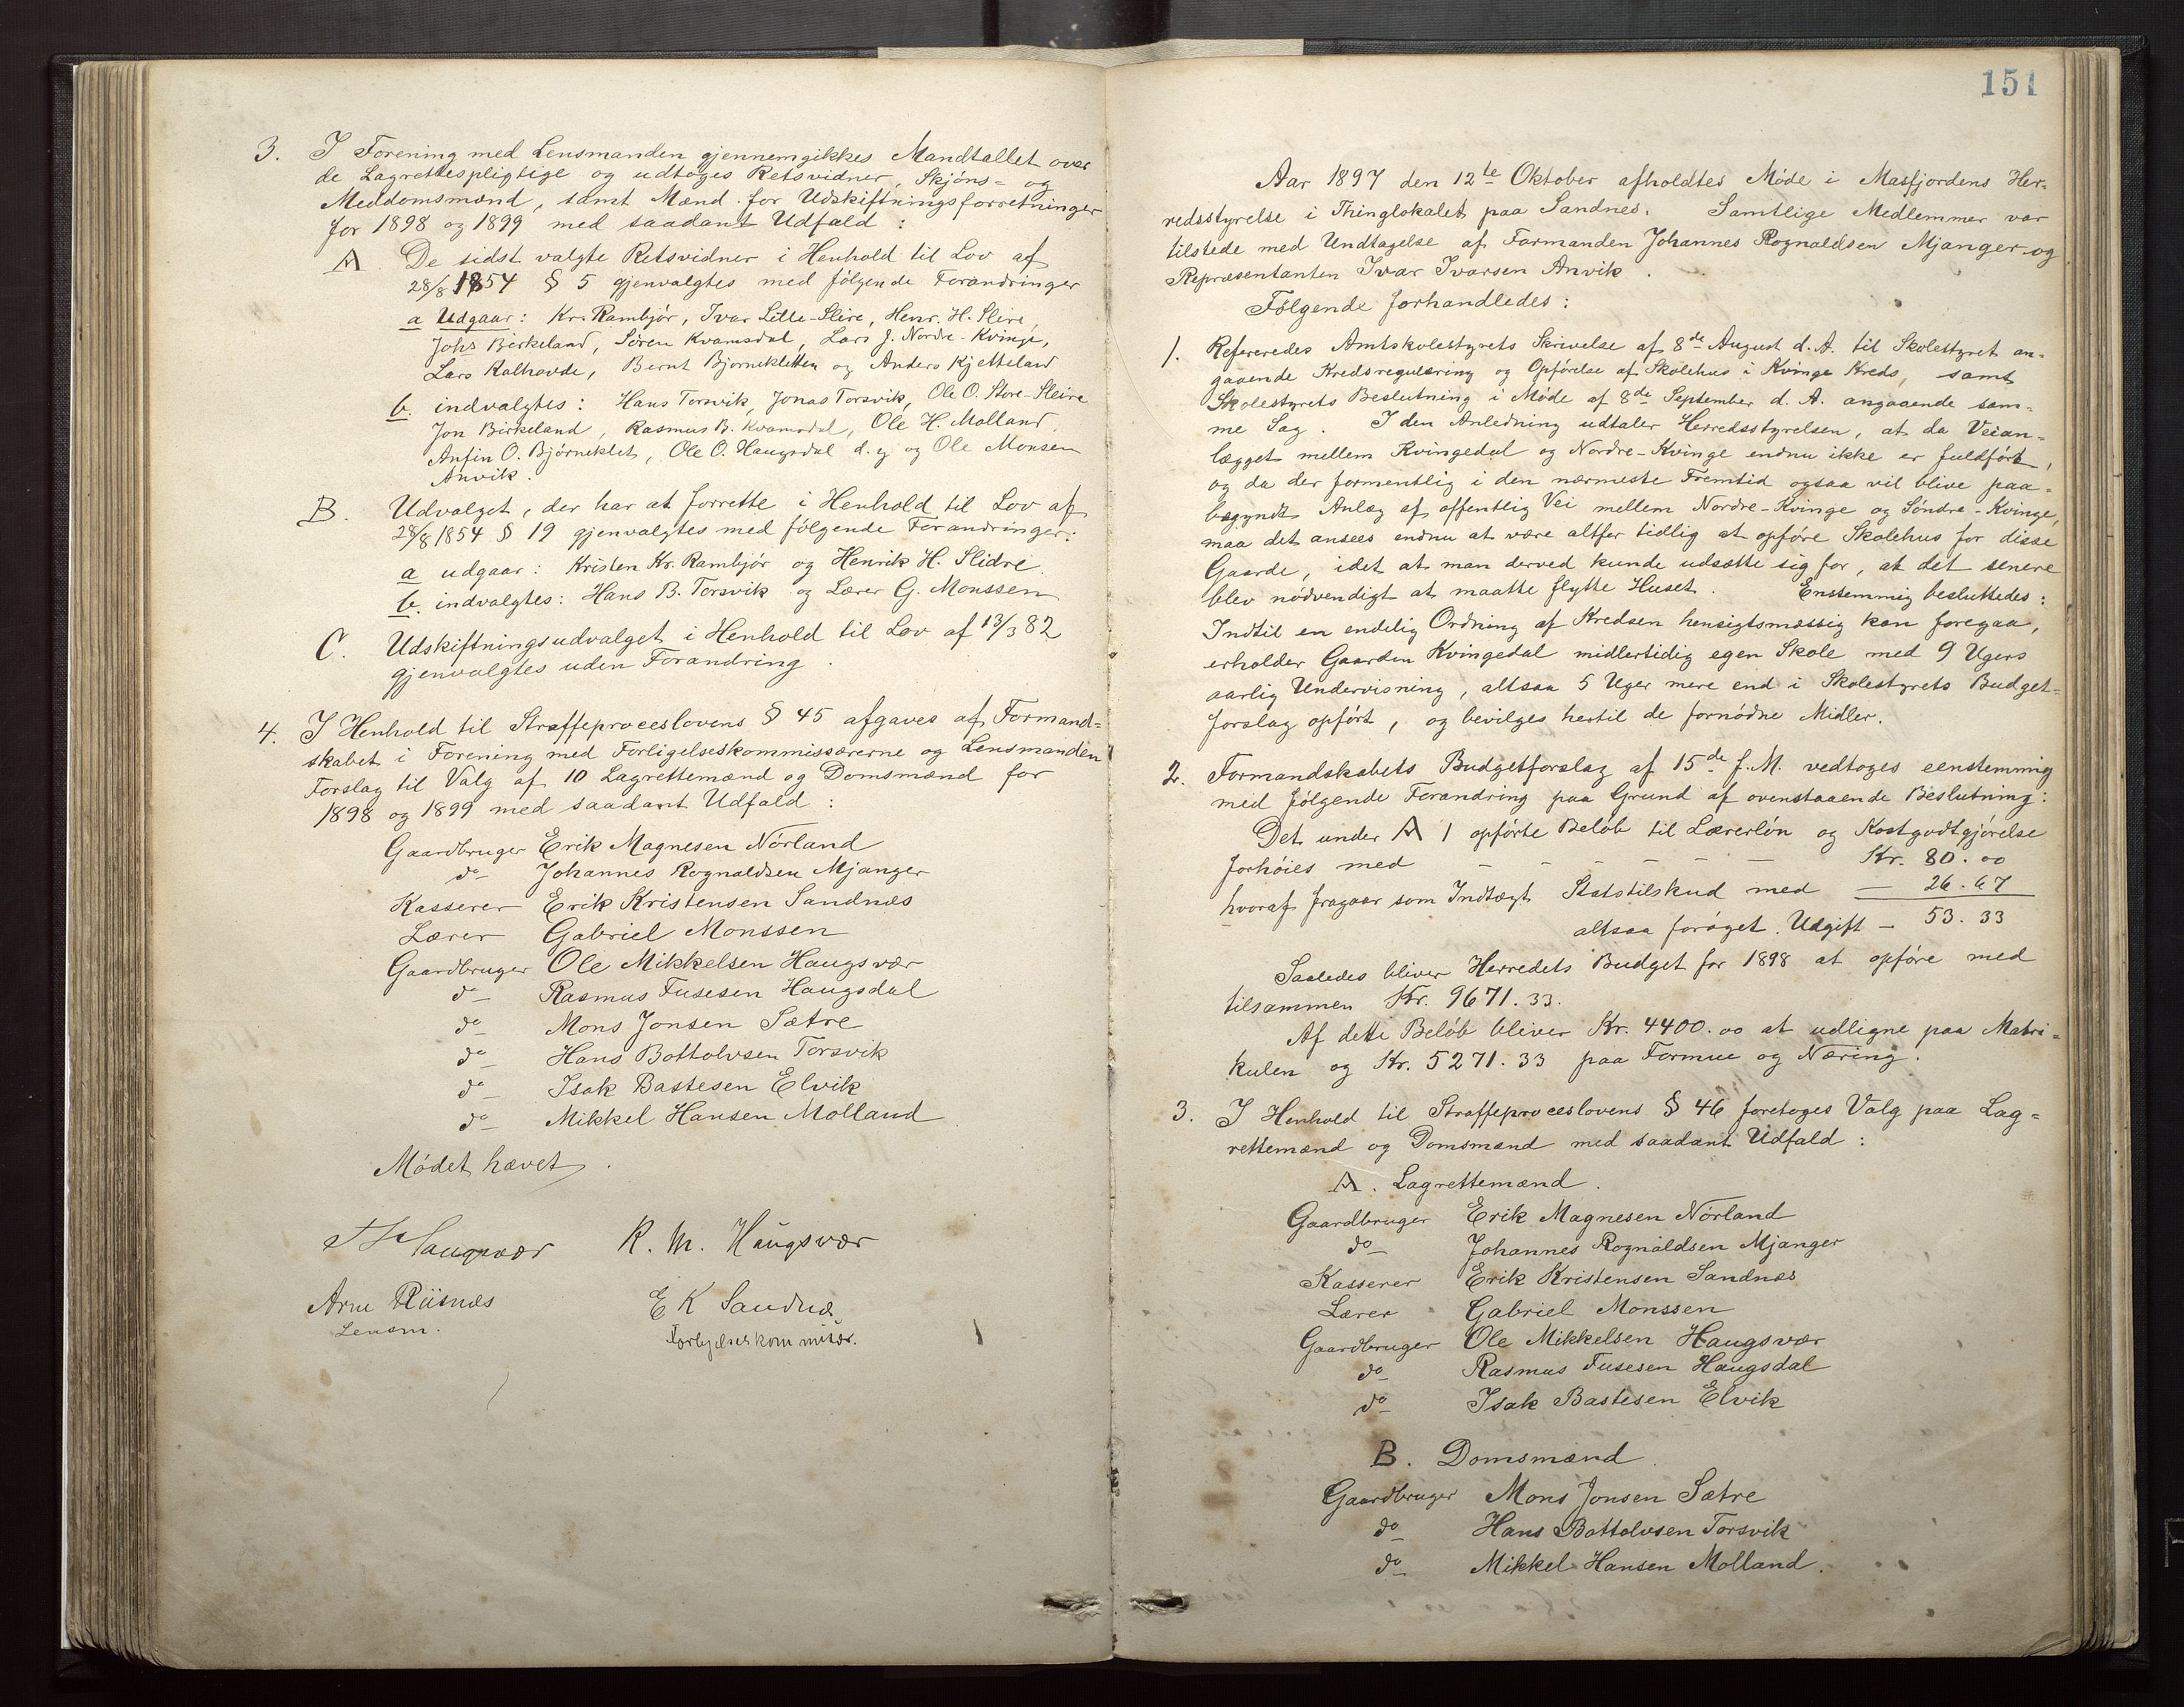 3. I Forening med Lensmanden gjennemgikkes Mandtallet over
de Lagrettespligtige og udtoges Retsvidner, Skjøns- og
Meddomsmænd, samt Mænd for Udskiftningsforretninger
for 1898 og 1899 med saadant Udfald:
A De sidst valgte Retsvidner i Henhold til Lov af
28/8 1854 § 5 gjenvalgtes med følgende Forandringer
a Udgaar: Kr. Rambjør, Ivar Litle-Slire, Henr. H. Slire,
Johs Birkeland, Søren Kvamsdal, Lars J. Nordre-Kvinge,
Lars Kalhovde, Bernt Bjørnekletten og Anders Kjetteland
b. indvalgtes: Hans Torsvik, Jonas Torsvik, Ole O. Store-Sleire
Jon Birkeland, Rasmus B. Kvamsdal, Ole H. Molland,
Anfin O. Bjørneklet, Ole O. Haugsdal d. y og Ole Monsen
Anvik.
B. Udvalget, der har at forrette i Henhold til Lov af
28/8 1854 § 19 gjenvalgtes med følgende Forandringer:
a udgaar: Kristen Kr. Rambjør og Henrik H. Slidre.
b. indvalgtes: Hans B. Torsvik og Lærer G. Monssen
C. Udskiftningsudvalget i Henhold til Lov af 13/3 82
gjenvalgtes uden Forandring.
4. I Henhold til Straffeproceslovens § 45 afgaves af Formand-
skabet i Forening med Forligelseskommissærerne og Lensmanden
Forslag til Valg af 10 Lagrettemænd og Domsmænd for
1898 og 1899 med saadant Udfald:
Gaardbruger Erik Magnesen Nørland
do Johannes Rognaldsen Mjanger
Kasserer Erik Kristensen Sandnæs
Lærer Gabriel Monssen
Gaardbruger Ole Mikkelsen Haugsvær
do Rasmus Fusesen Haugsdal
do Mons Jonsen Sætre
do Hans Bottolvsen Torsvik
do Isak Bastesen Elvik
do Mikkel Hansen Molland
Mødet hævet.
Haugsvær R. M. Haugsvær
Arne Riisnæs E K Sandnæs
Lensm. Forligelseskommisær.
151
Aar 1897 den 12te Oktober afholdtes Møde i Masfjordens Her-
redsstyrelse i Thinglokalet paa Sandnes. Samtlige Medlemmer var
tilstede med Undtagelse af Formanden Johannes Rognaldsen Mjanger og
Repræsentanten Ivar Ivarsen Anvik.
Følgende forhandledes:
1. Refereredes Amtskolestyrets Skrivelse af 8de August d. A. til Skolestyret an-
gaaende Kredsregulering og Opførelse af Skolehus i Kvinge Kreds, samt
Skolestyrets Beslutning i Møde af 8de September d. A. angaaende sam-
me Sag. I den Anledning udtaler Herredsstyrelsen, at da Veian-
lægget mellem Kvingedal og Nordre-Kvinge endnu ikke er fuldført,
og da der formentlig i den nærmeste Fremtid ogsaa vil blive paa-
begyndt Anlæg af offentlig Vei mellem Nordre-Kvinge og Søndre-Kvinge,
maa det ansees endnu at være altfor tidlig at opføre Skolehus for disse
Gaarde, idet at man derved kunde udsætte sig for, at det senere
blev nødvendigt at maatte flytte Huset. Enstemmig besluttedes:
Indtil en endelig Ordning af Kredsen hensigtsmæssig kan foregaa,
erholder Gaarden Kvingedal midlertidig egen Skole med 9 Ugers
aarlig Undervisning, altsaa 5 Uger mere end i Skolestyrets Budget-
forslag opført, og bevilges hertil de fornødne Midler.
2. Formandskabets Budgetforslag af 15de f. M. vedtoges eenstemmig
med følgende Forandring paa Grund af ovenstaaende Beslutning:
Det under A 1 opførte Beløb til Lærerløn og Kostgodtgjørelse
forhøies med - - - - - - Kr. 80.00
hvoraf fragaar som Indtægt Statstilskud med — 26.67
altsaa forøget Udgift - 53.33
Saaledes bliver Herredets Budget for 1898 at opføre med
tilsammen Kr. 9671.33.
Af dette Beløb bliver Kr. 4400.00 at udligne paa Matri-
kulen og Kr. 5271.33 paa Formue og Næring.
3. I Henhold til Straffeproceslovens § 46 foretoges Valg paa Lag-
rettemænd og Domsmænd med saadant Udfald:
A. Lagrettemænd.
Gaardbruger Erik Magnesen Nørland
do Johannes Rognaldsen Mjanger
Kasserer Erik Kristensen Sandnæs
Lærer Gabriel Monssen
Gaardbruger Ole Mikkelsen Haugsvær
do Rasmus Fusesen Haugsdal
do Isak Bastesen Elvik
B. Domsmænd.
Gaardbruger Mons Jonsen Sætre
do Hans Bottolvsen Torsvik
do Mikkel Hansen Molland.